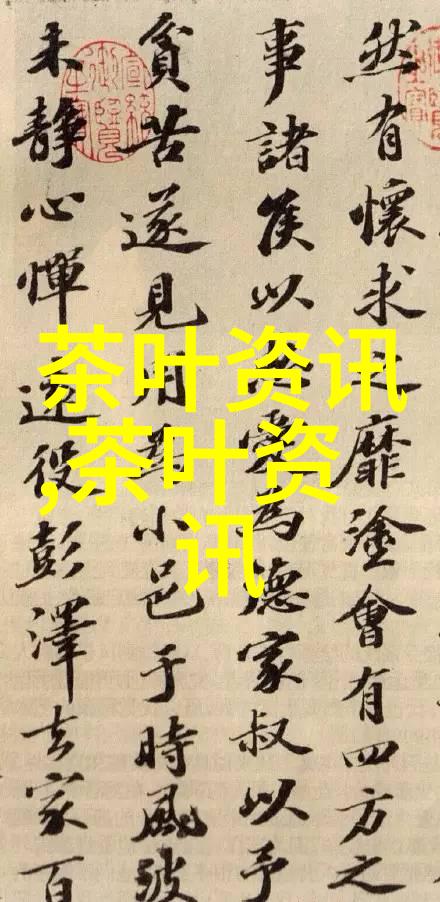 然有懷求之靡塗會有四方之
事諸侯以愛為德家叔以予
貧苦遂見用為小邑于時風波
未靜心憚遠役彭澤去家百
茶叶资讯
,茶叶资
讯